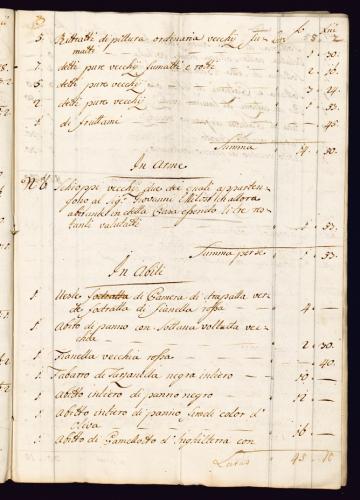 5. Ritratti di pittura ordinaria vecchi fu=
matti — 1. 30.
7. detti pure vecchj fumatti e rotti 2. 10.
6. detti pure vecchj — 3. 24.
2 detti pure vecchj — 1. 53.
1 di fruttami — 45.
Summa 14. 30.
In Arme
N. 6 Schioppi vecchj due de quali apparten=
gono al Sigr. Giovanni
nella Casa essendo li tre re=
stanti valutatti — 1. 53.
Summa per se 1. 53.
In Abiti
1 Veste fodratta di Camera di drapalla ver=
de fodratta di fianella rossa 4. —
1 di panno con sottana voltatta vec=
chia — 2. 30.
1. Fianella vecchia rossa — 40.
1. Tabarro di negra intiero — 10. —
1. Abitto intiero di panno negro — 12. —
1. Abitto intiero di panno simile color d'
oliva — 16. —
1. Abitto di Camellotto d'Inghilterra con
Latus 45. 10